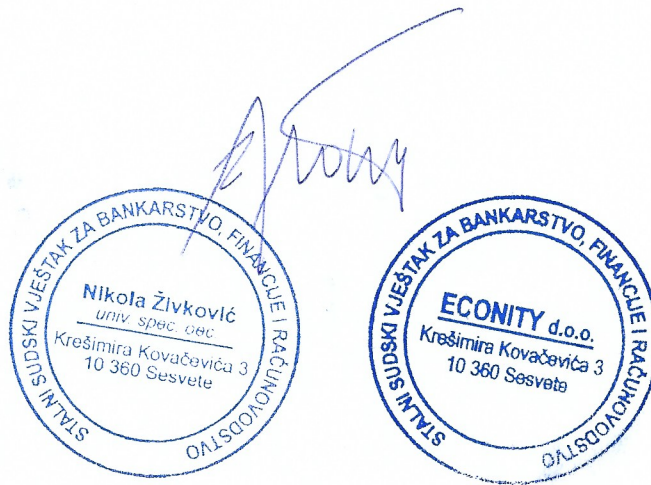 STALNI SUDSKI VJEŠTAK ZA BANKARSTVO, FINANCIJE I RAČUNOVODSTVO
Nikola Živković
univ. spec. oec
Krešimira Kovačevića 3
10 360 Sesvete
STALNI SUDSKI VJEŠTAK ZA BANKARSTVO, FINANCIJE I RAČUNOVODSTVO
ECONITY d.o.o.
Krešimira Kovačevića 3
10 360 Sesvete